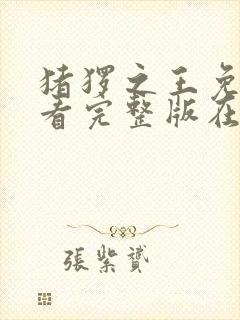 猪猡之王免
看完整版在
張紫贇